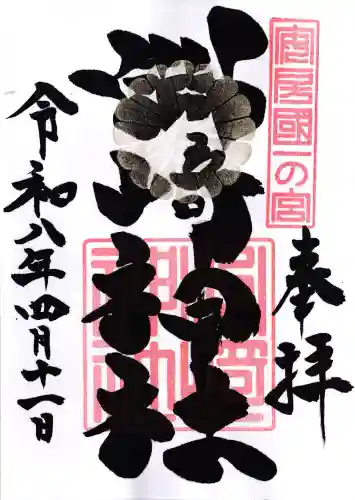 安房國一の宮
奉拝
洲崎神社
令和八年四月十一日